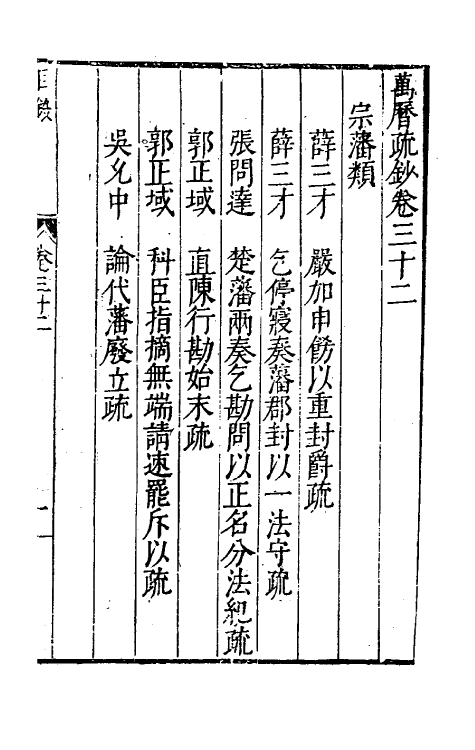 萬曆疏鈔卷三十二
宗藩類
薛三才　嚴加申飭以重封爵疏
薛三才　乞停寢奏藩郡封以一法守疏
張問達　楚藩兩奏乞勘問以正名分法紀疏
郭正域　直陳行勘始末疏
郭正域　科臣指摘無端請速罷斥以疏
吳允中　論代藩廢立疏
卷三十二
一